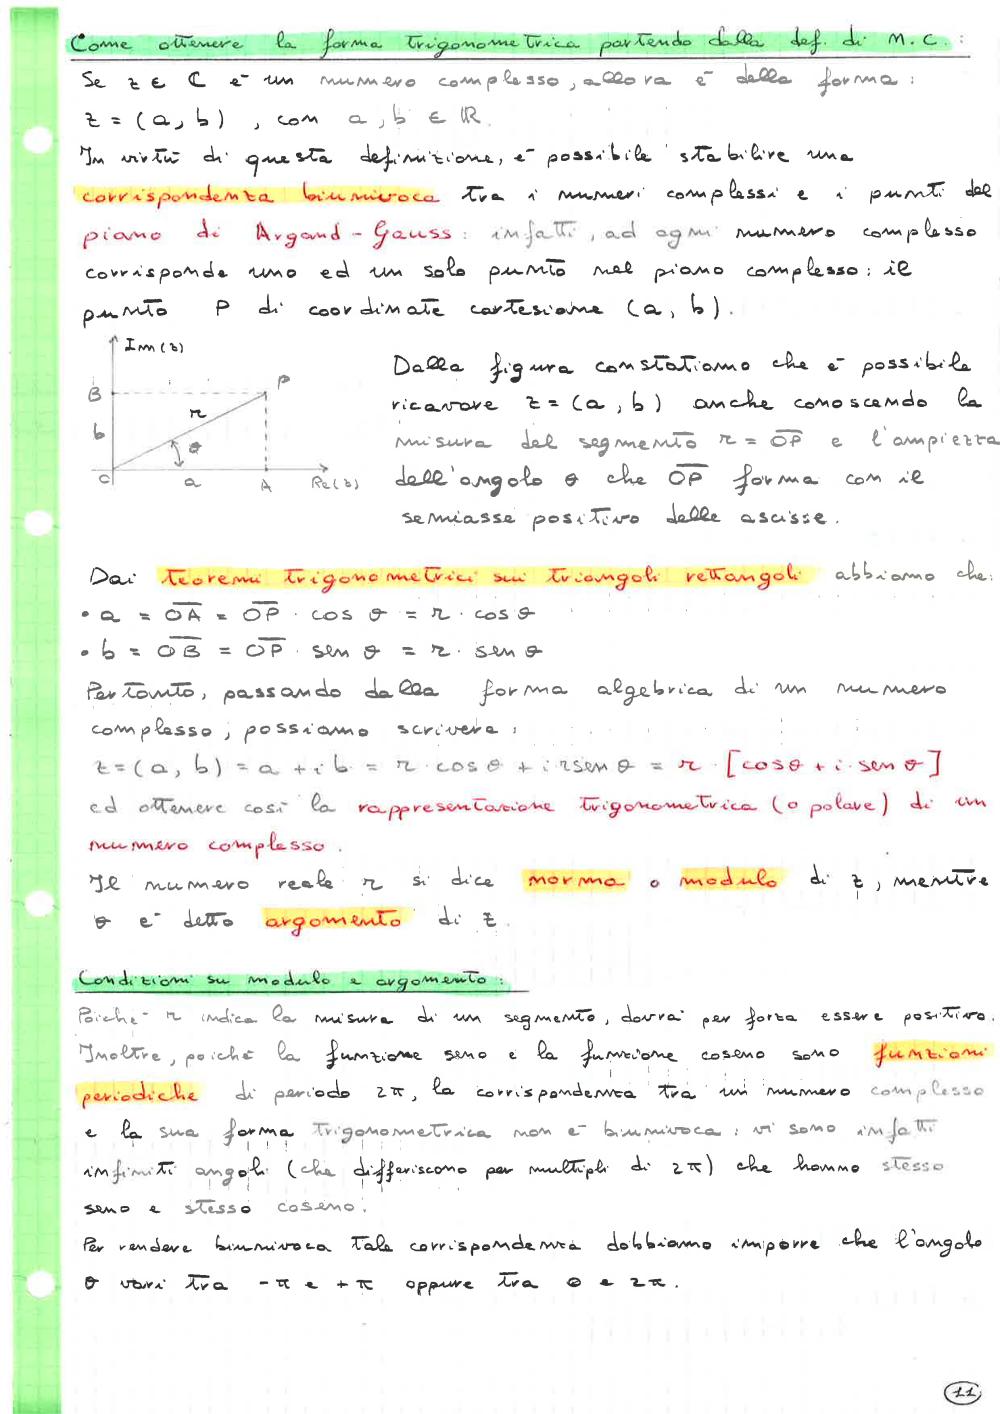 Come ottenere la forma trigonometrica partendo dalla def. di N.C.:
Se z ∈ ℂ è un numero complesso, allora è della forma:
z = (a, b), con a, b ∈ ℝ.
In virtù di questa definizione, è possibile stabilire una
corrispondenza biunivoca tra i numeri complessi e i punti del
piano di Argand-Gauss: infatti, ad ogni numero complesso
corrisponde uno ed un solo punto nel piano complesso: il
punto P di coordinate cartesiane (a, b).
Im(z)
B
P
r
b
θ
O
a
A
Re(z)
Dalla figura constatiamo che è possibile
ricavare z = (a, b) anche conoscendo la
misura del segmento r = O̅P̅ e l'ampiezza
dell'angolo θ che O̅P̅ forma con il
semiasse positivo delle ascisse.
Dai teoremi trigonometrici sui triangoli rettangoli abbiamo che:
• a = O̅A̅ = O̅P̅ · cos θ = r · cos θ
• b = O̅B̅ = O̅P̅ · sen θ = r · sen θ
Pertanto, passando dalla forma algebrica di un numero
complesso, possiamo scrivere:
z = (a, b) = a + ib = r · cos θ + i r sen θ = r · [cos θ + i · sen θ]
ed ottenere così la rappresentazione trigonometrica (o polare) di un
numero complesso.
Il numero reale r si dice norma o modulo di z, mentre
θ è detto argomento di z.
Condizioni su modulo e argomento:
Poiché r indica la misura di un segmento, dovrà per forza essere positivo.
Inoltre, poiché la funzione seno e la funzione coseno sono funzioni
periodiche di periodo 2π, la corrispondenza tra un numero complesso
e la sua forma trigonometrica non è biunivoca: vi sono infatti
infiniti angoli (che differiscono per multipli di 2π) che hanno stesso
seno e stesso coseno.
Per rendere biunivoca tale corrispondenza dobbiamo imporre che l'angolo
θ vari tra -π e +π oppure tra 0 e 2π.
11